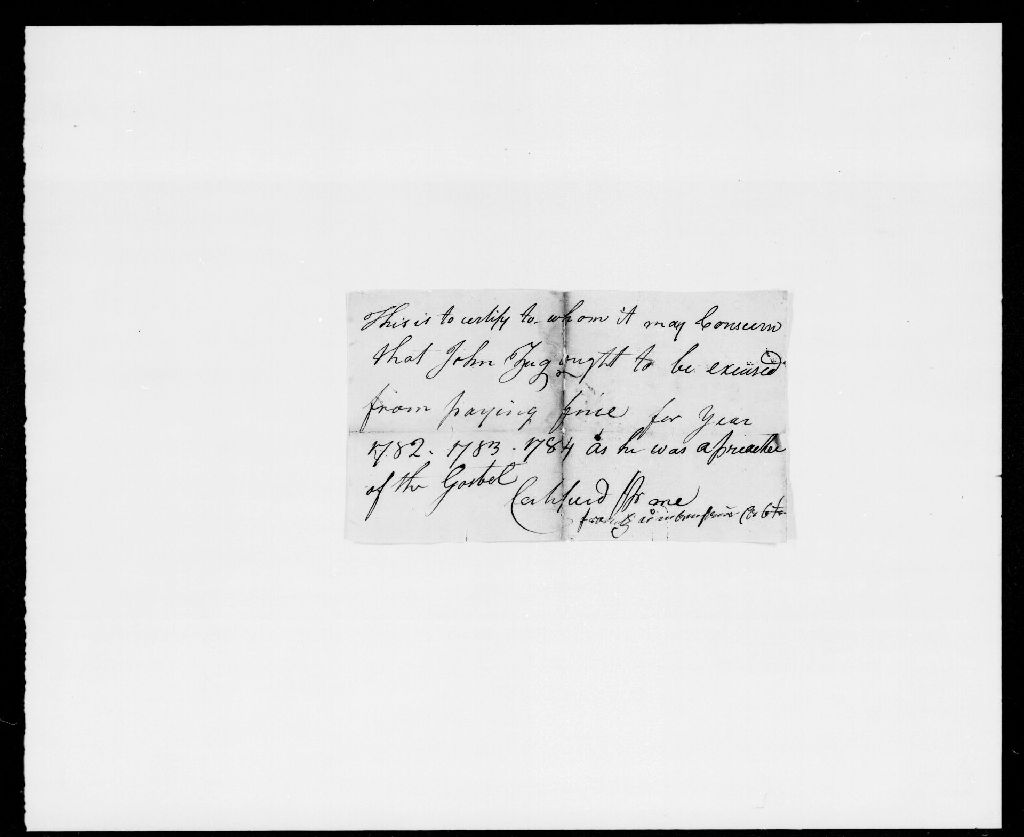 This is to certify to whom it may Conscern
that John Tug ought to be excused
from paying fine for Year
1782 - 1783 - 1784 as he was a Preacher
of the Gosbel
Certifued Pr me